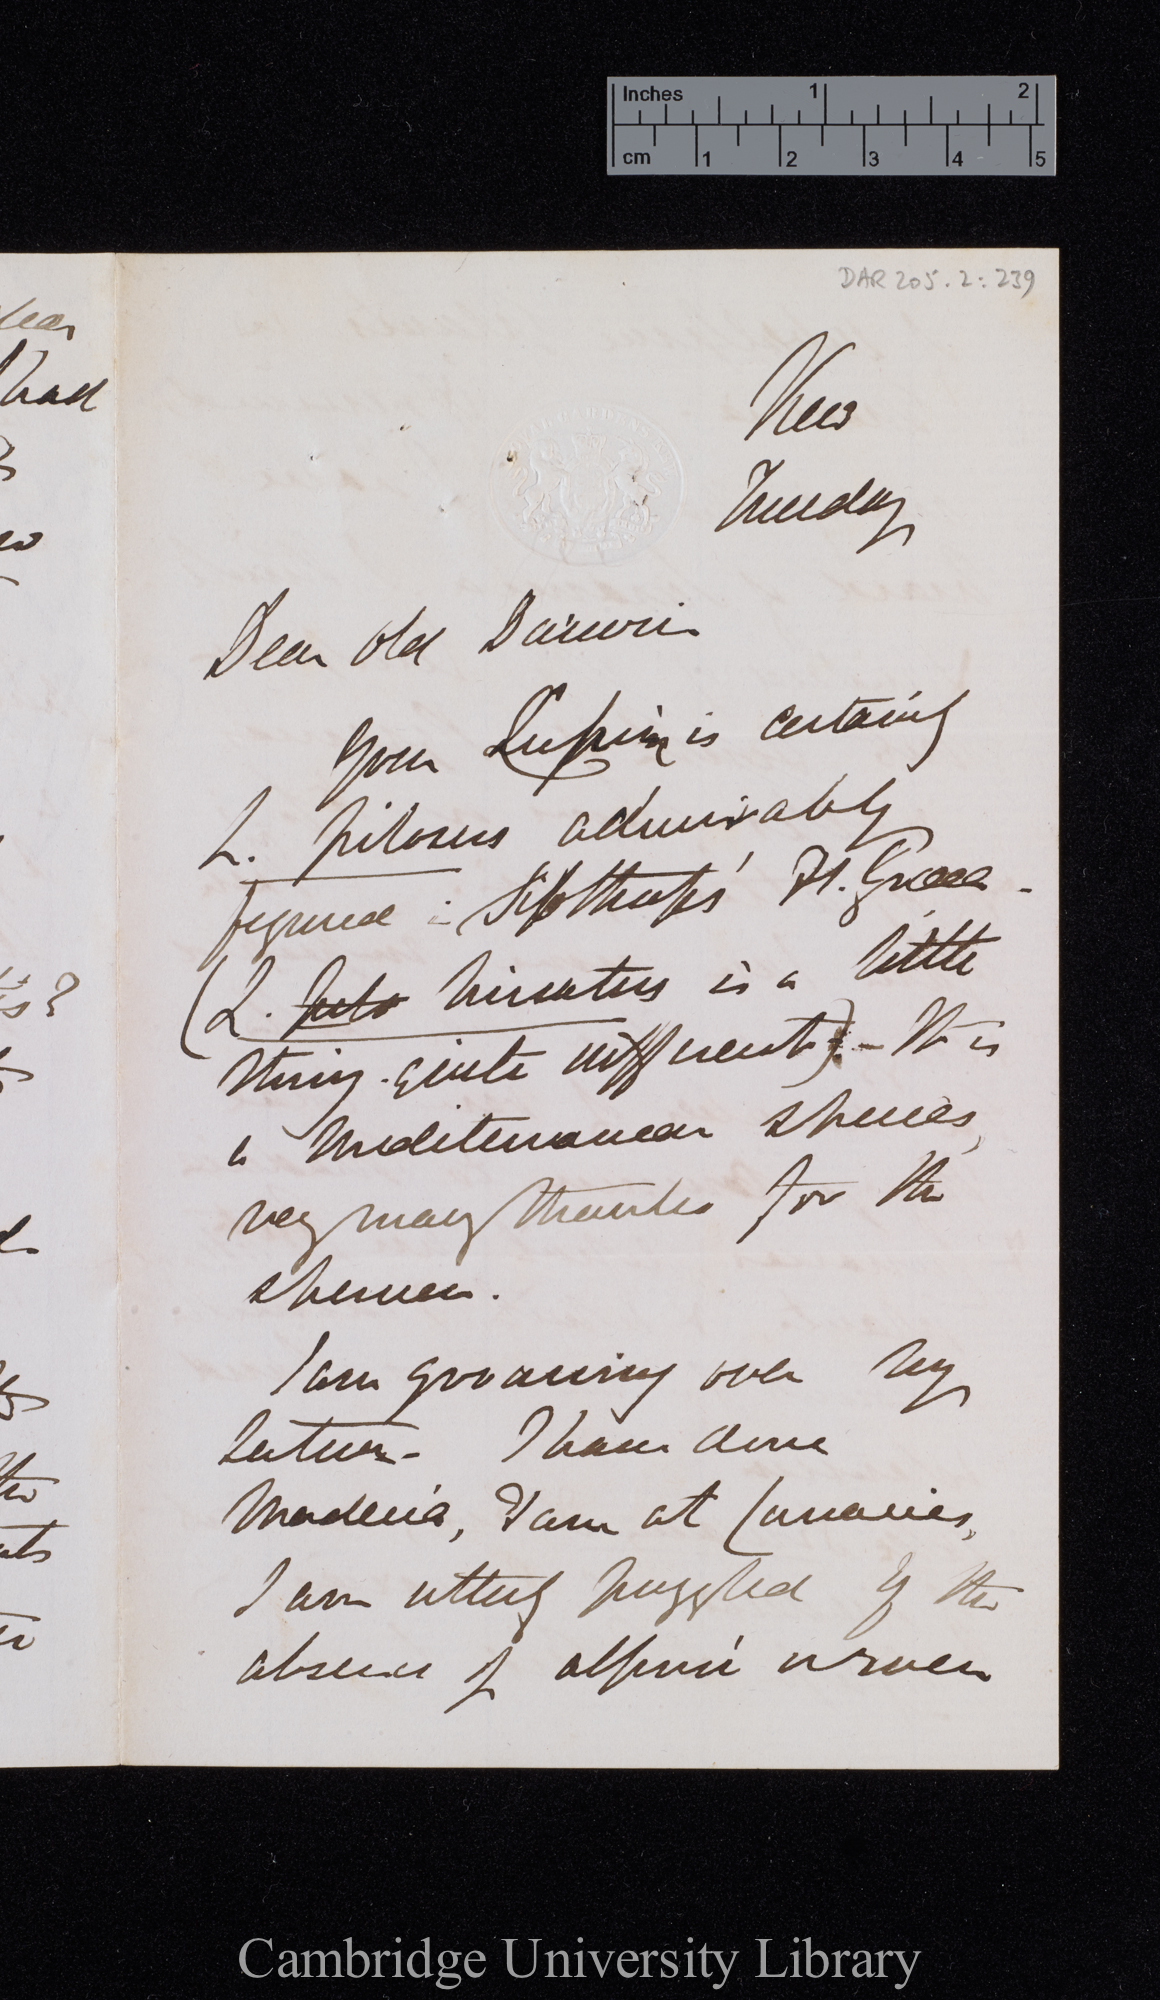 Inches 1 2
cm 1 2 3 4 5
DAR 205.2:239
Kew
Tuesday
Dear old Darwin
Your Lupin is certainly
L. pilosus admirably
figured in Sibthorps' Fl. Græca -
(L. hirsutus is a little
thing quite different) - It is
a Mediterranean species,
very many thanks for the
specimen.
I am groaning over my
Lecture - I have done
Madeira, I am at Canaries,
I am utterly puzzled by the
absence of alpine or even
had
ts?
the
Cambridge University Library